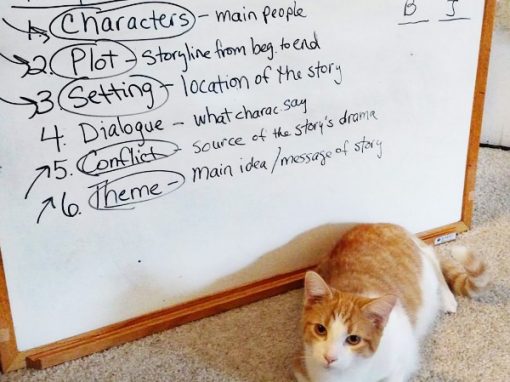 B J
1. Characters - main people
2. Plot - storyline from beg. to end
3. Setting - location of the story
4. Dialogue - what charac. say
5. Conflict - source of the story's drama
6. Theme - main idea/message of story